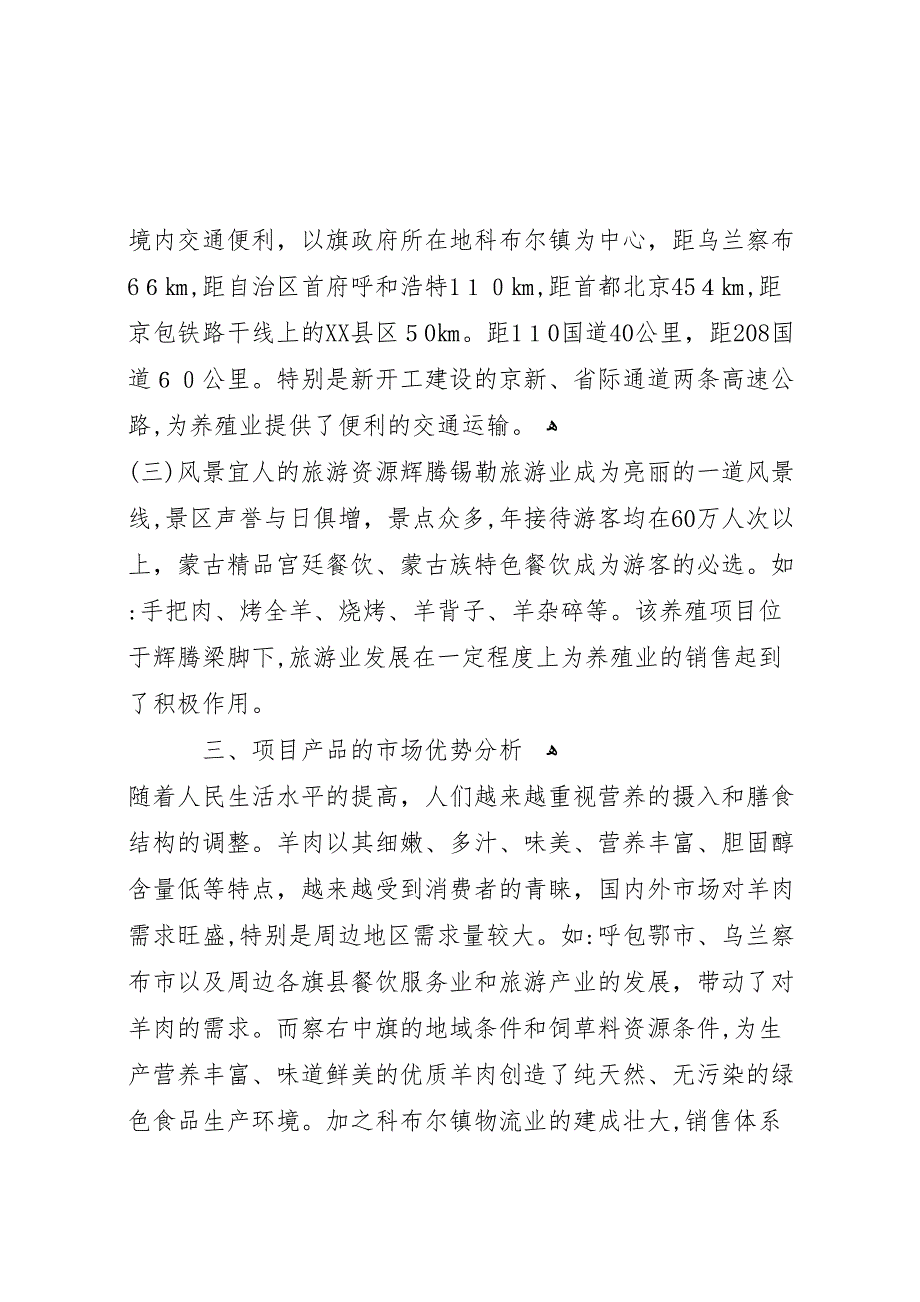 境内交通便利，以旗政府所在地科布尔镇为中心，距乌兰察布
66km,距自治区首府呼和浩特110km,距首都北京454km,距
京包铁路干线上的XX县区50km。距110国道40公里，距208国
道60公里。特别是新开工建设的京新、省际通道两条高速公
路,为养殖业提供了便利的交通运输。 ﻫ
(三)风景宜人的旅游资源辉腾锡勒旅游业成为亮丽的一道风景
线,景区声誉与日俱增，景点众多,年接待游客均在60万人次以
上，蒙古精品宫廷餐饮、蒙古族特色餐饮成为游客的必选。如
:手把肉、烤全羊、烧烤、羊背子、羊杂碎等。该养殖项目位
于辉腾梁脚下,旅游业发展在一定程度上为养殖业的销售起到
了积极作用。
三、项目产品的市场优势分析 ﻫ
随着人民生活水平的提高，人们越来越重视营养的摄入和膳食
结构的调整。羊肉以其细嫩、多汁、味美、营养丰富、胆固醇
含量低等特点，越来越受到消费者的青睐，国内外市场对羊肉
需求旺盛,特别是周边地区需求量较大。如:呼包鄂市、乌兰察
布市以及周边各旗县餐饮服务业和旅游产业的发展，带动了对
羊肉的需求。而察右中旗的地域条件和饲草料资源条件,为生
产营养丰富、味道鲜美的优质羊肉创造了纯天然、无污染的绿
色食品生产环境。加之科布尔镇物流业的建成壮大,销售体系